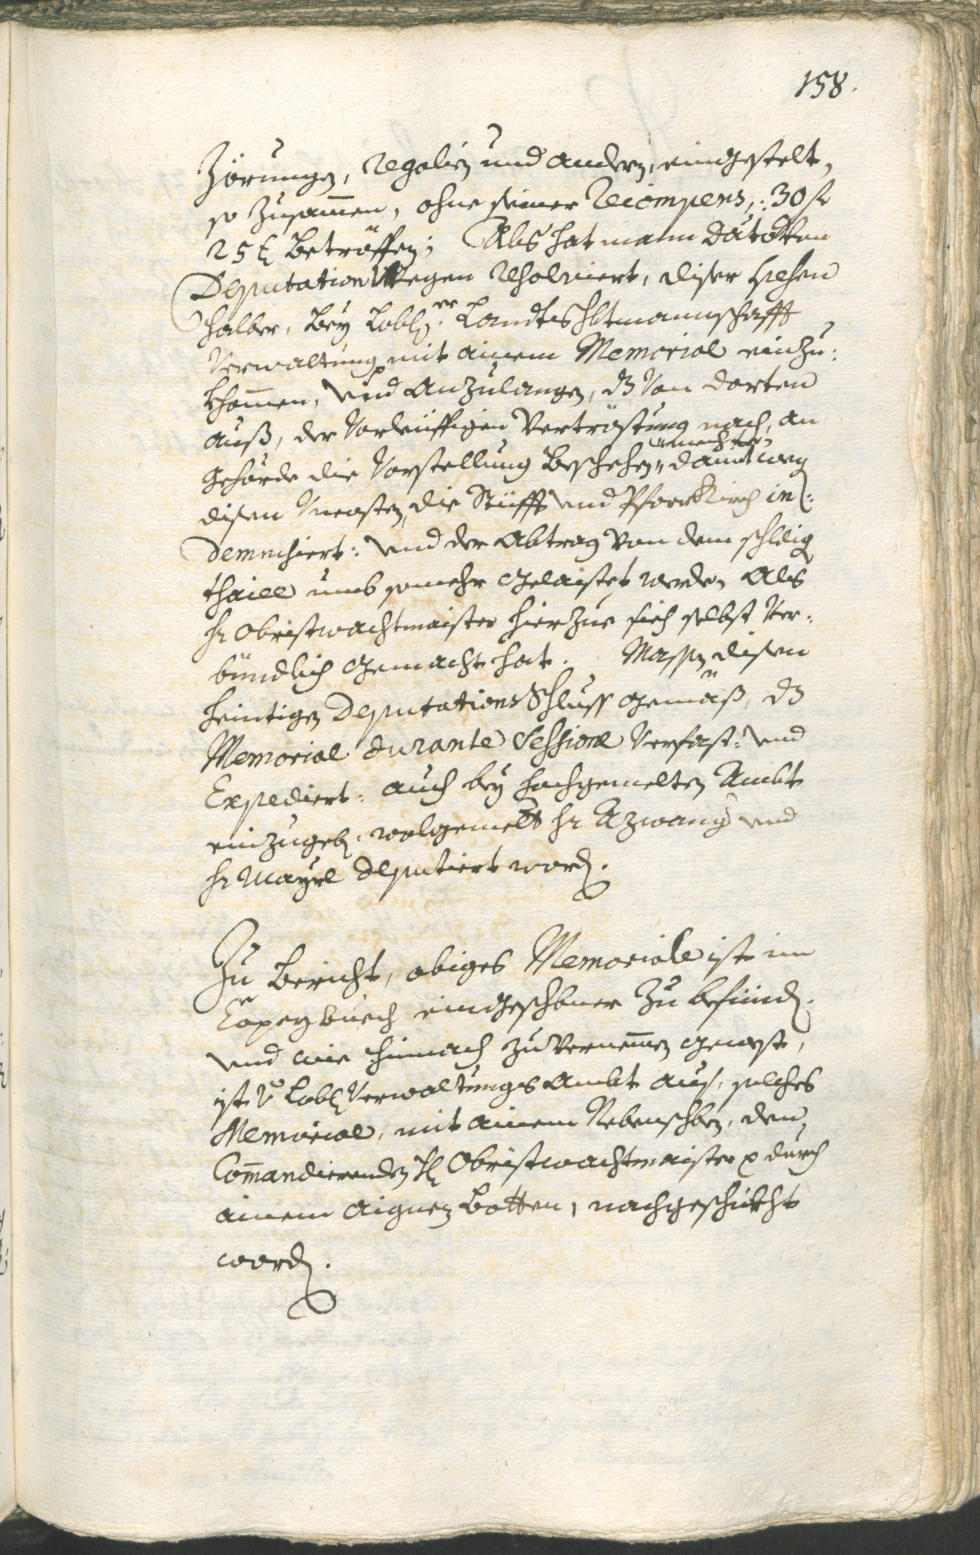 158.
Zörungen, Regalien und andern, eingestelt,
so zusamen, ohne seiner Recompens, 30 fl
25 kr betröffen; Alß hat mann dato von
Deputation wegen Resolviert, diser
halber, bey Lobl: er Landtshbtmannschafft
Verwaltung mit ainem Memorial einzu:
khomen, und anzulangen, dz von dorten
auß, der vorleiffigen Vertröstung nach, an
gehörde die Vorstellung beschehen, damit
disen die Stüfft und Pfarrkirch in:
demnisiert: und der Abtrag von dem schldig
thaill umb somehr gelaistet werden, als
hr Obristwachtmaister hierzue sich selbst Ver:
bündlich gemacht hat. Massen disem
heintigen Deputations Schluss gemäß, dz
Memorial durante Sessione verfast: und
Expediert: auch bey hochgemelten Ambt
einzugeben, wolgemelt hr Azwang und
hr Mayrl deputiert worden.
Zu Bericht, obiges Memoriale ist im
Copeybuech eingeschribner zu befünden.
und wie hinnach zuvernemen gewest,
ist Lobl Verwaltungs Ambt aus, solches
Memorial, mit ainem Nebenschreiben, dem
Commandierenden H Obristwachtmaister p durch
ainem aignen Botten, nachgeschikht
worden.